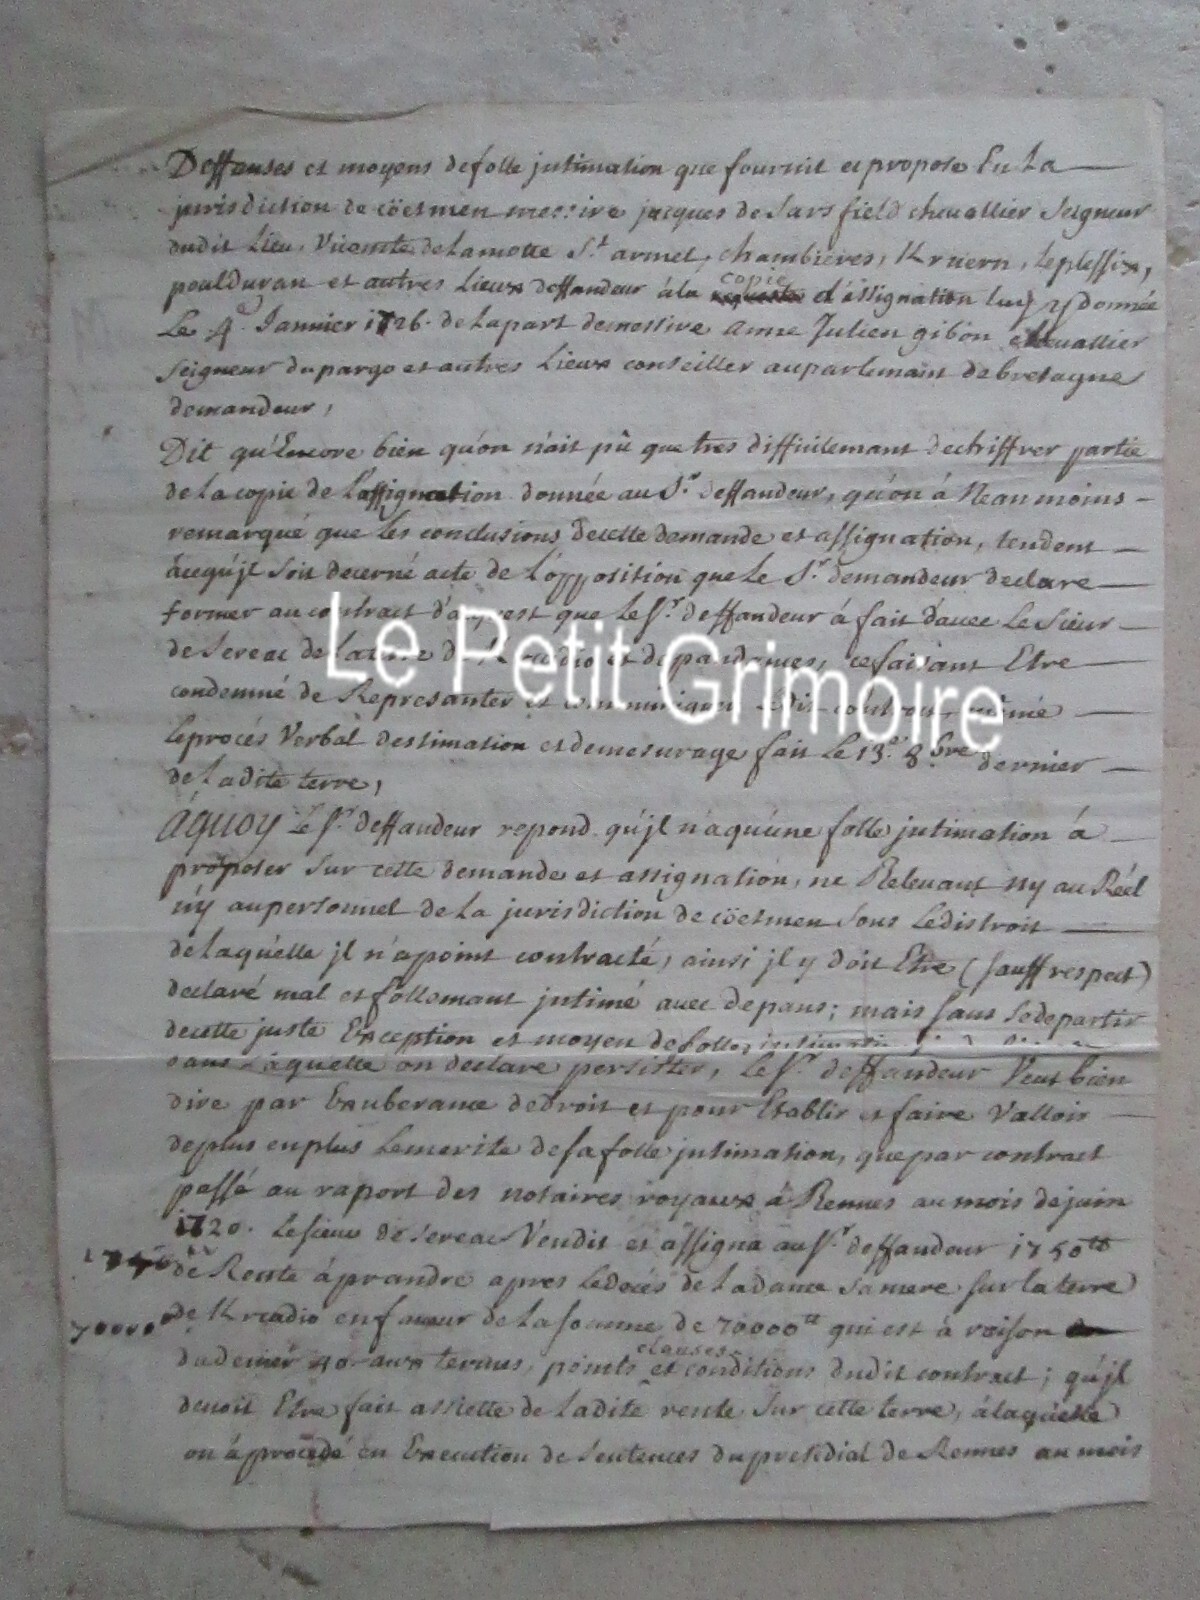 Deffenses et moyens de folle jntimation que fournit et propose En La
jurisdiction de cöetmen messire jacques de Sarsfield chevallier Seigneur
dudit Lieu, Vicomte de Lamotte St. armel, chambieres, Kruern, Leplessix,
poulduran et autres Lieux deffandeur à la copie d'assignation luy donnée
Le 4e Januier 1726. de la part de messire anne Julien gibon chevallier
Seigneur du pargo et autres Lieux conseiller au parlemant de bretagne
demandeur,
Dit qu'Encore bien qu'on n'ait pû que tres difficilemant dechiffrer partie
de la copie de L'assignation donnée au Sr. deffandeur, qu'on à Neanmoins
remarqué que Les conclusions de cette demande et assignation, tendent
àcequ'jl soit decerné acte de L'opposition que Le Sr. demandeur declare
former au contract d'acquest que Le Sr. deffandeur à fait d'avec Le Sieur
de Sereac de La terre de Krcadio et depandances, ce faisant Etre
condemné de Represanter et communiquer Ledit contract, même
Le procés Verbal destimation et de mesurage fait Le 13e. 8bre dernier
de Ladite terre,
Aquoy Le Sr. deffandeur repond qu'jl n'a qu'une folle jntimation à
proposer sur cette demande et assignation, ne Relevant ny au Réel
ny au personnel de La jurisdiction de cöetmen sous Le distroit
de laquelle jl n'a point contracté, ainsi jl y doit Etre (sauff respect)
declaré mal et follemant jntimé avec depans; mais sans se departir
de cette juste Exception et moyen de folle jntimation
dans laquelle on declare persister, Le Sr. deffandeur Veut bien
dire par Exuberance de droit et pour Etablir et faire Valloir
de plus en plus Le merite de sa folle jntimation, que par contract
passé au raport des notaires royaux à Rennes au mois de juin
1720. Le sieur de Sereac Vendit et assigna au Sr. deffandeur 1750tt
1750tt
de Rente à prandre apres Le decés de La dame sa mere sur la terre
70000tt
de Krcadio en faveur de La somme de 70000tt qui est à raison
du denier 40. aux termes, points clauses et conditions dudit contract; qu'jl
devoit Etre fait assiette de Ladite rente Sur cette terre, àlaquelle
on à procedé en Execution de Sentences du presidial de Rennes au mois
Le Petit Grimoire